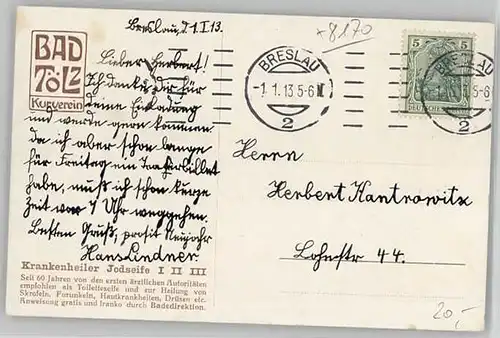 Breslau, d 1.I 13.
+8170
BAD
TÖLZ
Kurverein
Lieber Herbert!
Ich danke Dir für
deine Einladung
und werde gern kommen
da ich aber schon lange
für Freitag ein Theaterbillet
habe, muß ich schon kurze
Zeit vor 7 Uhr weggehen.
Besten Gruß, prosit Neujahr
Hans Lindner.
BRESLAU
-1.1.13 5-6 N
2
5 5
DEUTSCHES
13.5-6
2
Herrn
Herbert Kantrowitz
Lohestr 44.
Krankenheiler Jodseife I II III
Seit 60 Jahren von den ersten ärztlichen Autoritäten
empfohlen als Toiletteseife und zur Heilung von
Skrofeln, Forunkeln, Hautkrankheiten, Drüsen etc.
Anweisung gratis und franko durch Badedirektion.
20,-